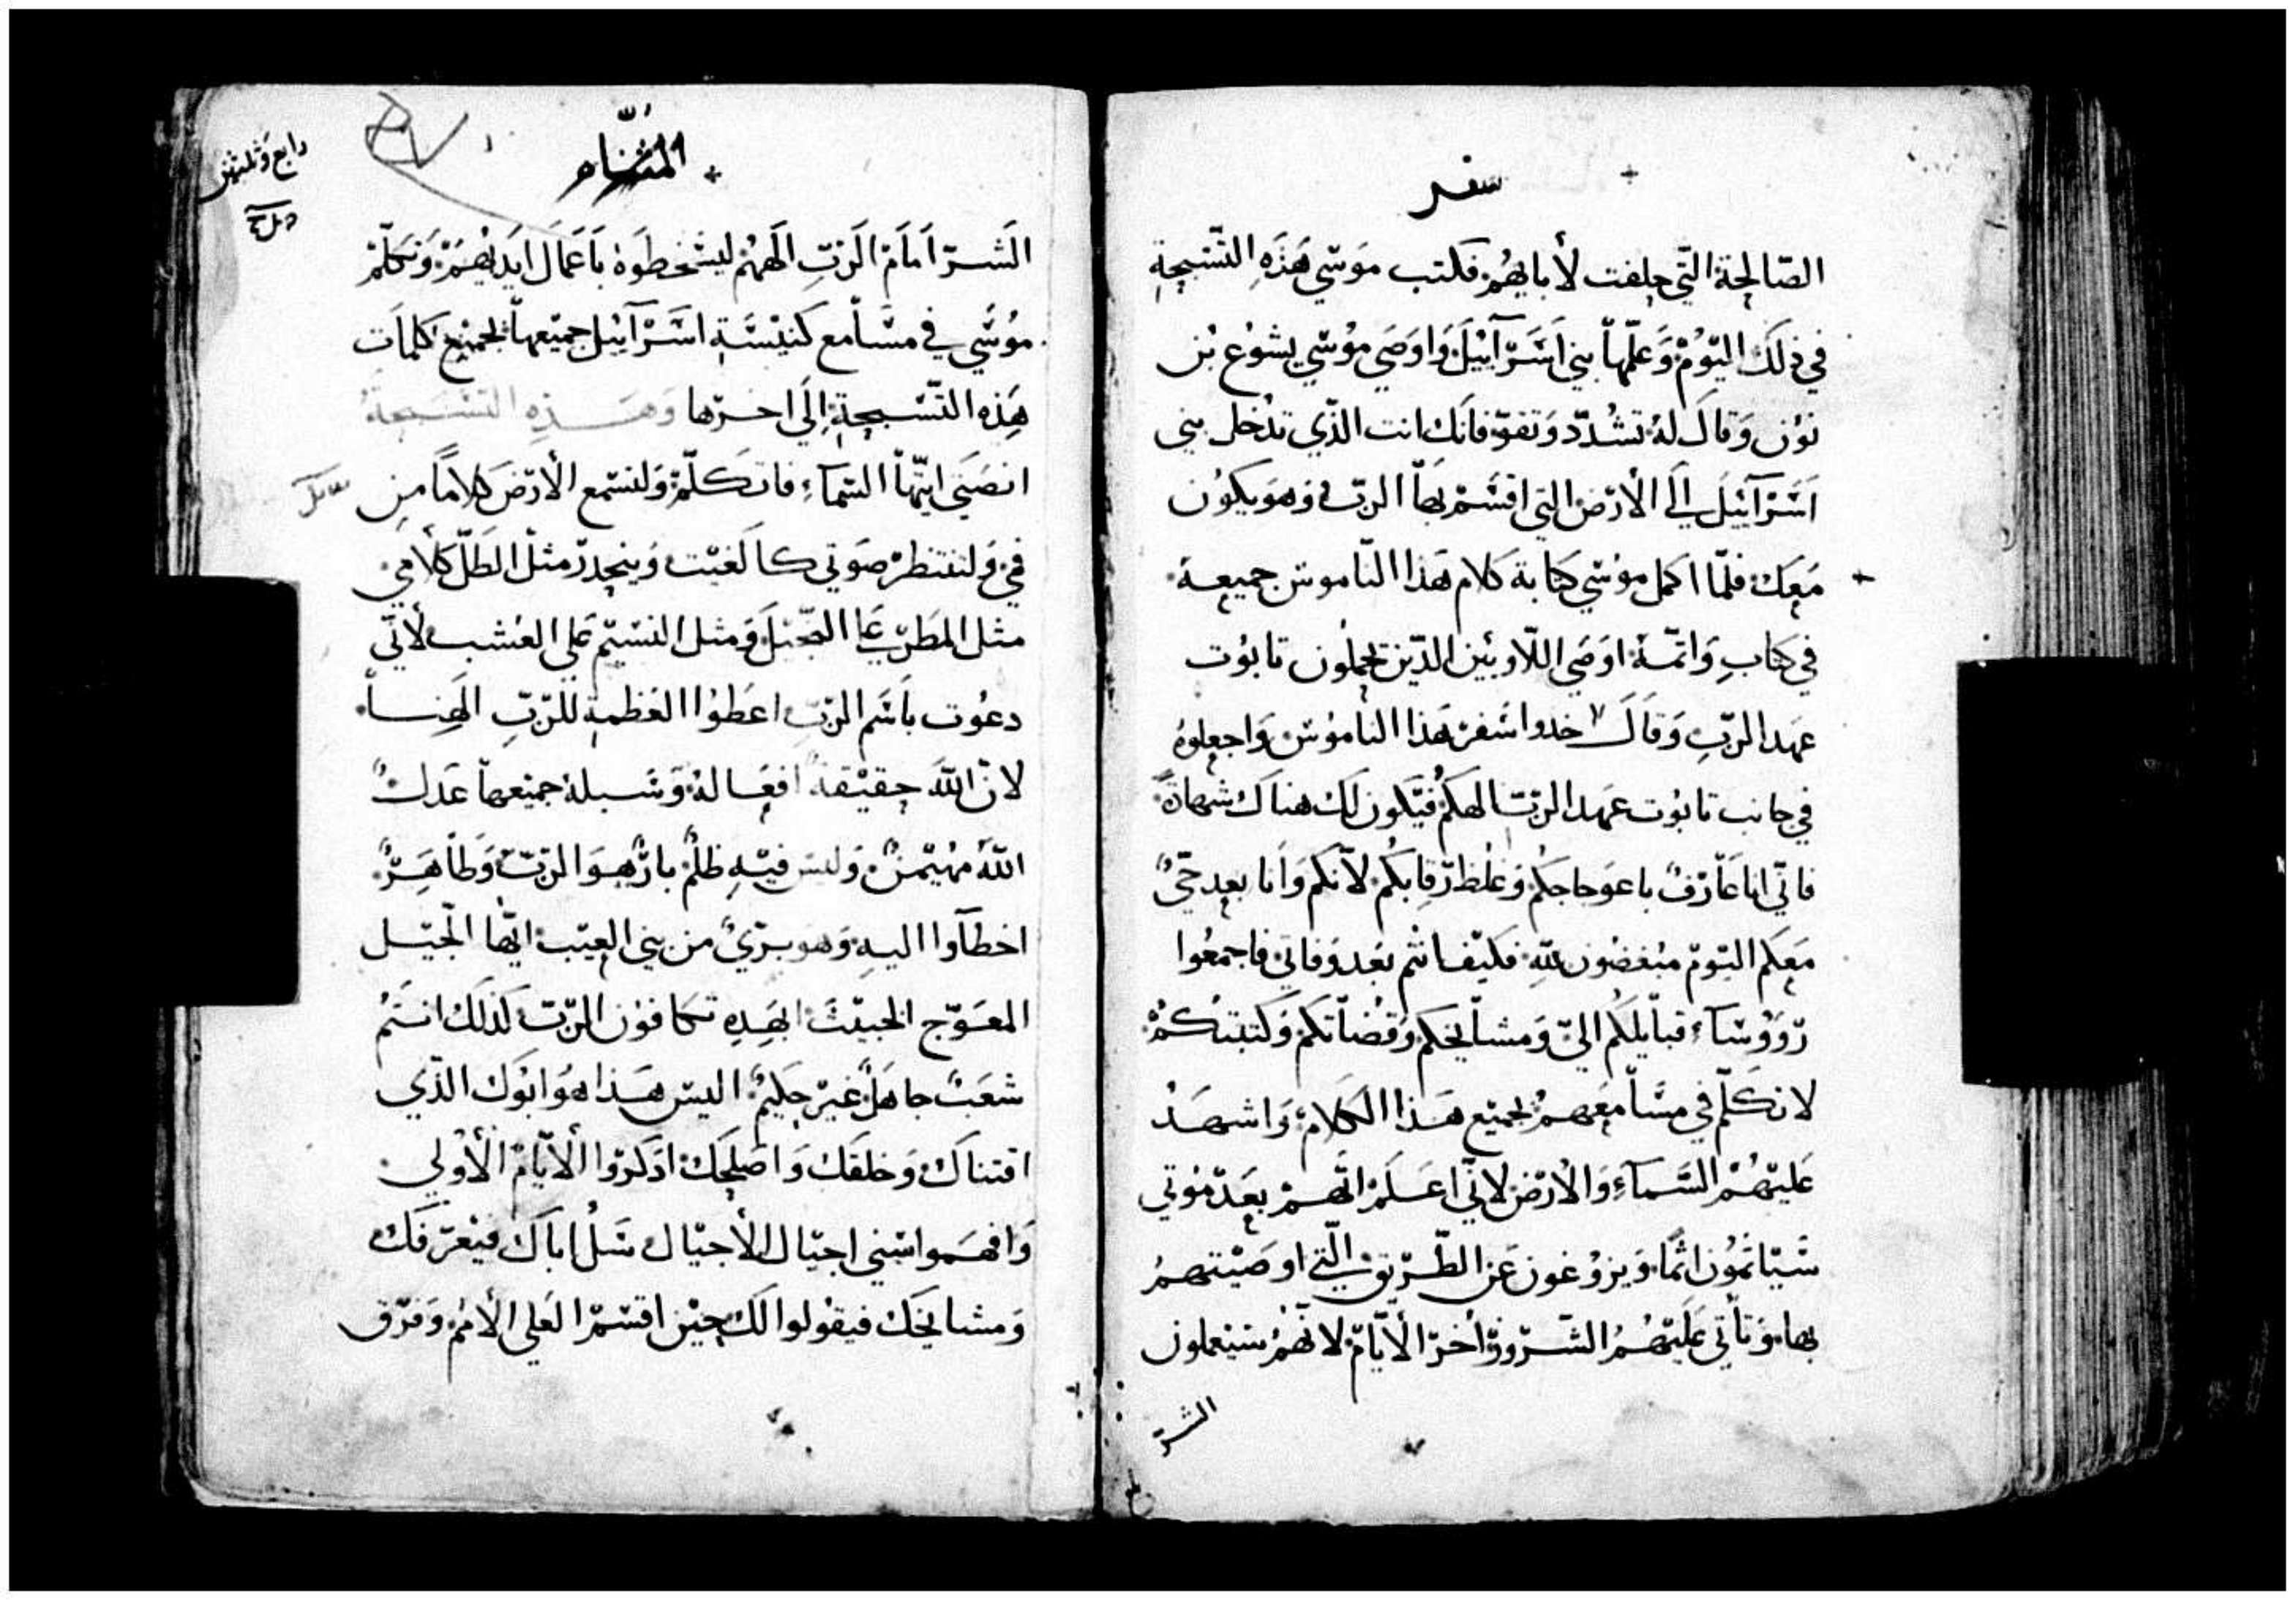 سفر
الصّالحة التّي حلفت لأبايهُم فكتب موَسّي هَذَهِ التّسَبحة
في ذلكَ اليَوُمْ وَعَلّمهاَ بني اسَرّآئيْلَ وَاوصَي موُسّي يشوُع بْن
نوُن وَقالَ لهُ تشُدّد وَتقوّ فانَك انت الذّي تدُخل بني
اَسَرْآئيْلَ إلَى الأرَض التي اقسَمْ بهَا الربّ وَهوَ يكوُن
مَعَك فلمّا اكمل موُسّي كتابة كلام هَذا النّاموسْ جميعهُ
في كتابِ وَاتمّهُ اوَصَي اللّاويْين الذّين يحملوُن تابوُت
عهد الربِّ وَقاَلَ خدوا سَفرَ هَذا الناموُسْ وَاجعلوهُ
في جانب تابوُت عهد الربّ الهكُم فيَكون لك هناكَ شهادةً
فانّي انا عَارفٌ باعوجاجكُم وَغلُظ رّقابكُم لأنكم وَانا بعد حَيٌّ
مَعكم اليَومْ مبُغضوُن للهِ فكيْف انتُم بعَد وَفاتي فاجمعُوا
رّوَوُسْآء قبآيلكُم اليّ وَمشاَيخكم وَقُضاتكم وَكتبَتكُمْ
لاتكَلّم في مسَامَعهمُ بجميْع هَذا الكَلامْ وَاشهَدُ
عَليْهُمْ السَّماءِ وَالأرَض لانّي اعَلَمْ انَّهمْ بعَدْ مَوُتي
سَيْاثَموُن اثمًا وَيزوُغون عَن الطّرّيْق الّتي اوصَيْتهمُ
بها وَتأتي عَليْهُمُ الشّروُرّ أخرّ الأيّامْ لانّهُمْ سَيْعملون
الشرّ
المثُنّاه
رابع وَثلثيْن
الشَّرّ اَمامْ الَربّ الهَهُمْ ليسَخطوَهْ باعَماَل ايَديْهُمْ وَتكلّمْ
موُسَّي في مسَّامع كنيْسَّةِ اسَّرْآئيْل جميْعهاَ بجميْع كلماَت
هَذه التّسَبحةِ إلَي اخرّها وَهَذِهِ التسَبَحةُ
انصَتي ايتّهاَ السّمَاءِ فاتَكلّمْ وَلتسّمع الأرّضَ كلامًا من
فيّ وَلتنتظرْ صَوتي كالغيْت وَينحدرّ مثلْ الطَلّ كلَامي
مثل المطَرّ علَى النّجيْل وَمثل النسَيْم عَلي العُشب لأنّي
دعوُت باسَم الربِّ اعَطوُا العَظمة للرّبِّ الهَنا
لانّ اللهَ حقيْقةً افعَالهُ وَسَبلهُ جميْعهاَ عَدلٌ
اللهُ مهُيْمنٌ وَليسَ فيْهِ ظلمٌ بارٌّ هوَ الربّ وَطاَهِرٌ
اخطآوا اليهِ وَهو برّيٌ من بني العيْب ايّها الجيْل
المعَوّج الخبيْثَ ابهَذِهِ تكافوُن الربّ كَذلكَ انتَمُ
شعَبٌ جاهَلٌ غيْر حَكيْمٌ اليسَ هَذا هوَ ابوُك الذّي
اقتناكَ وَخلقك وَاصَلحَك ادَكرّوا الأيّامْ الأوْلي
وَافهَموا سَني اجيْال الأجيْال سَلُ اباكَ فيْعرّفَك
وَمشايخك فيقوُلوا لكَ حيْن اقسَمْ العَلي الأممْ وَفرّق